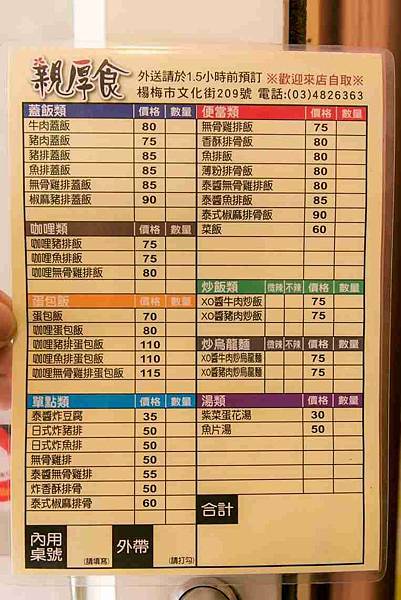 親厚食
外送請於1.5小時前預訂 ※歡迎來店自取※
楊梅市文化街209號 電話:(03)4826363
蓋飯類 價格 數量
牛肉蓋飯 80
豬肉蓋飯 75
豬排蓋飯 85
魚排蓋飯 85
無骨雞排蓋飯 85
椒麻豬排蓋飯 90
咖哩類 價格 數量
咖哩豬排飯 75
咖哩魚排飯 75
咖哩無骨雞排飯 80
蛋包飯 價格 數量
蛋包飯 70
咖哩蛋包飯 80
咖哩豬排蛋包飯 110
咖哩魚排蛋包飯 110
咖哩無骨雞排蛋包飯 115
單點類 價格 數量
泰醬炸豆腐 35
日式炸豬排 50
日式炸魚排 50
無骨雞排 50
泰醬無骨雞排 55
炸香酥排骨 50
泰式椒麻排骨 60
內用桌號 (請填寫) 外帶 (請打勾)
便當類 價格 數量
無骨雞排飯 75
香酥排骨飯 80
魚排飯 80
薄粉排骨飯 80
泰醬無骨雞排飯 80
泰醬魚排飯 85
泰式椒麻排骨飯 90
菜飯 60
炒飯類 微辣 不辣 價格 數量
XO醬牛肉炒飯 75
XO醬豬肉炒飯 75
炒烏龍麵 微辣 不辣 價格 數量
XO醬牛肉炒烏龍麵 75
XO醬豬肉炒烏龍麵 75
湯類 價格 數量
紫菜蛋花湯 30
魚片湯 50
合計